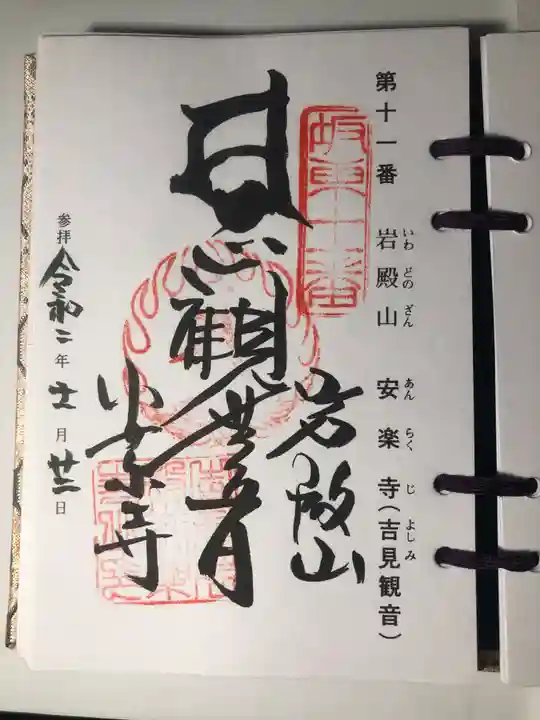 第十一番 岩殿山 安楽寺(吉見観音)
いわ どの ざん あん らく じ よしみ
坂東十一番
岩殿山
聖観世音
安楽寺
参拝 令和二年 十一月 廿二日